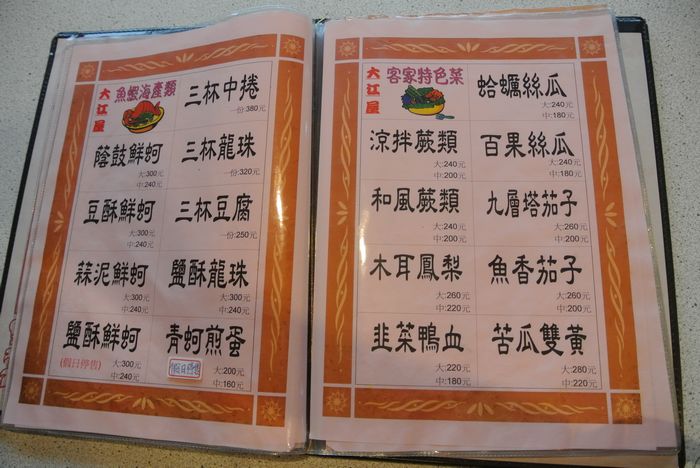 大江屋
魚蝦海產類
三杯中捲
一份:380元
蔭鼓鮮蚵
大:300元
中:240元
三杯龍珠
一份:320元
豆酥鮮蚵
大:300元
中:240元
三杯豆腐
一份:250元
蒜泥鮮蚵
大:300元
中:240元
鹽酥龍珠
大:300元
中:240元
鹽酥鮮蚵
(假日停售)
大:300元
中:240元
青蚵煎蛋
假日停售
大:200元
中:160元
大江屋
客家特色菜
蛤蠣絲瓜
大:240
中:180元
涼拌蕨類
大:240元
中:200元
百果絲瓜
大:240元
中:180元
和風蕨類
大:240元
中:200元
九層塔茄子
大:260元
中:200元
木耳鳳梨
大:260元
中:220元
魚香茄子
大:260元
中:200元
韭菜鴨血
大:220元
中:180元
苦瓜雙黃
大:280元
中:220元